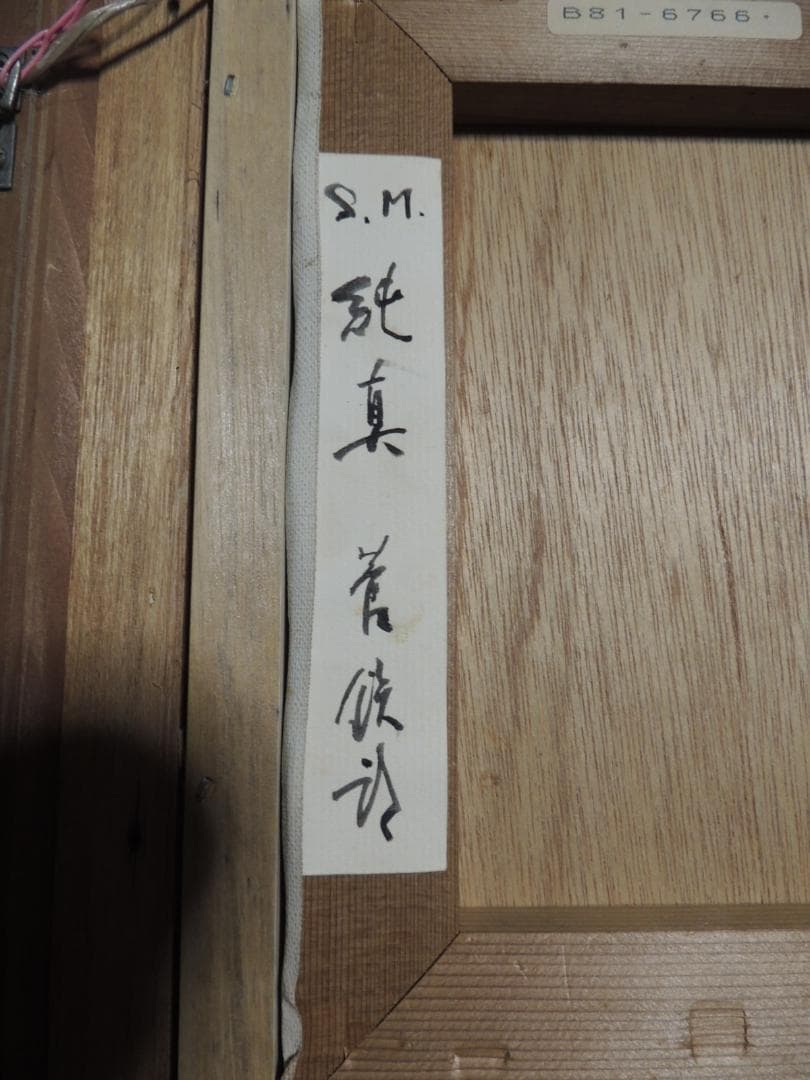 B81-6766.
S.M.
純真
菅鉄郎